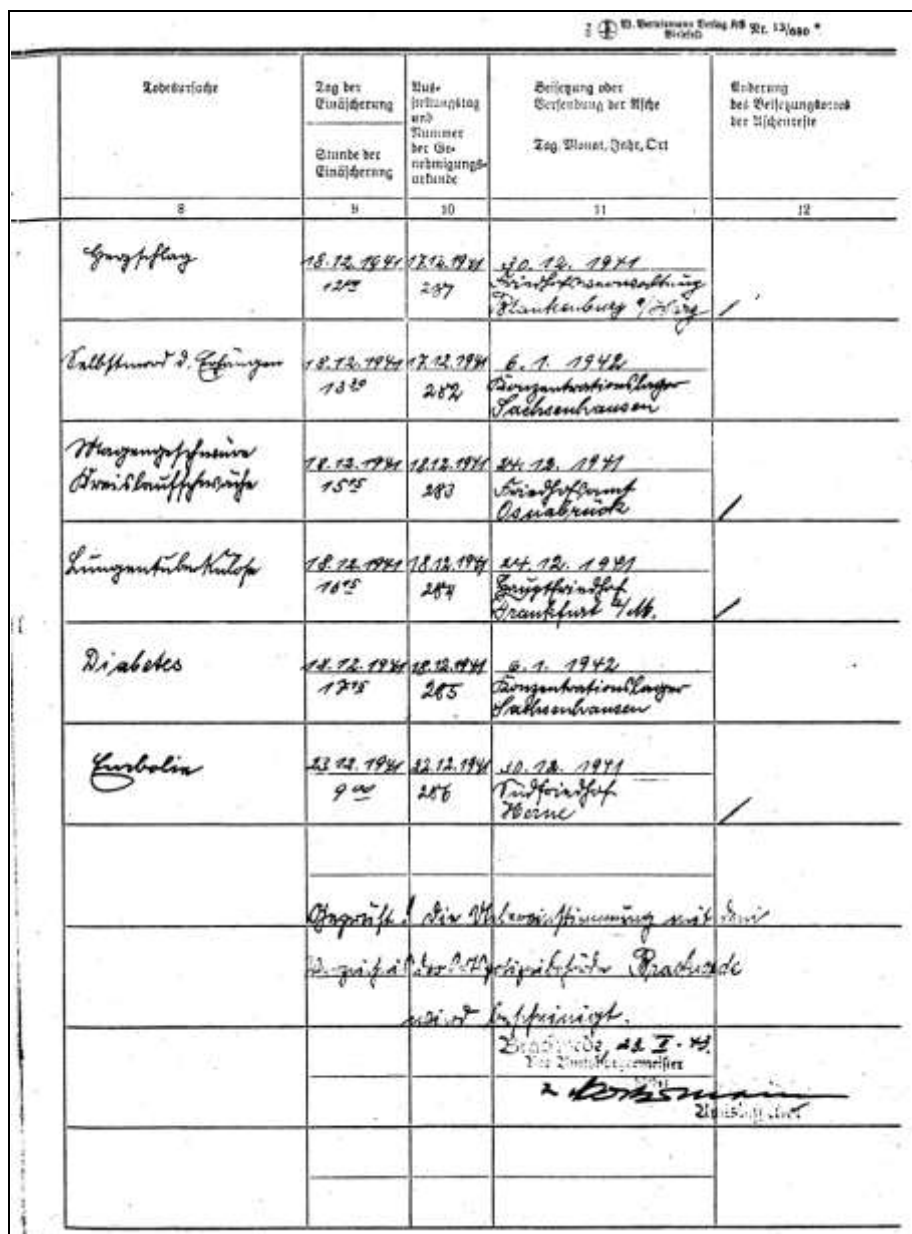 W. Bertelsmann Verlag KG Nr. 13/680 *
Bielefeld
Todesursache
Tag der
Einäscherung
Stunde der
Einäscherung
Aus-
stellungstag
und
Nummer
der Ge-
nehmigungs-
urkunde
Beisetzung oder
Versendung der Asche
Tag, Monat, Jahr, Ort
Änderung
des Beisetzungsortes
der Aschenreste
8 9 10 11 12
Herzschlag 18.12.1941 17.12.1941 30.12.1941
Friedhofsverwaltung
Blankenburg a/Harz
Selbstmord d. Erhängen 18.12.1941 17.12.1941 6.1.1942
13 282 Konzentrationslager
Sachsenhausen
Magengeschwüre
Kreislaufschwäche 18.12.1941 18.12.1941 24.12.1941
15 15 283 Friedhofsamt
Osnabrück
Lungentuberkulose 18.12.1941 18.12.1941 24.12.1941
16 15 284 Hauptfriedhof
Frankfurt a/M.
Diabetes 18.12.1941 18.12.1941 6.1.1942
17 15 285 Konzentrationslager
Sachsenhausen
Embolie 23.12.1941 22.12.1941 30.12.1941
9 00 286 Südfriedhof
Herne
Geprüft! Die Übereinstimmung mit dem
Brackwede
wird bescheinigt.
Brackwede,
Der Amtsbürgermeister